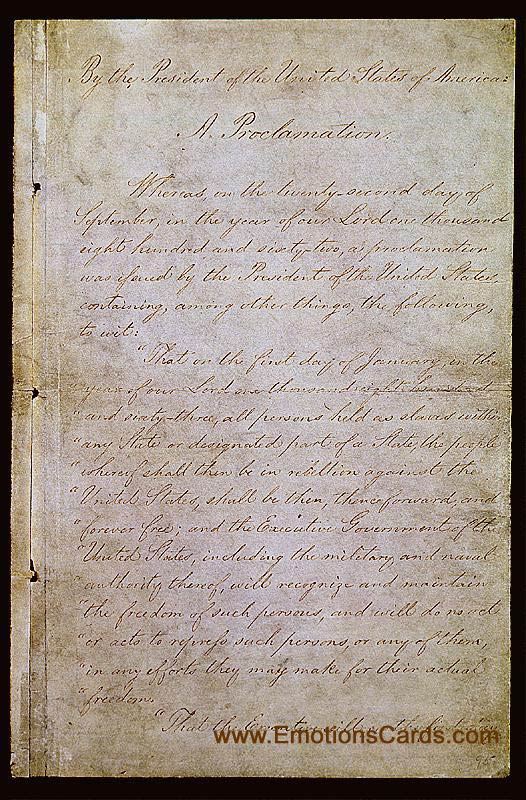 By the President of the United States of America:
A Proclamation.
Whereas, on the twenty-second day of
September, in the year of our Lord one thousand
eight hundred and sixty-two, a proclamation
was issued by the President of the United States,
containing, among other things, the following,
to wit:
"That on the first day of January, in the
"year of our Lord one thousand eight hundred
"and sixty-three, all persons held as slaves within
"any State or designated part of a State, the people
"whereof shall then be in rebellion against the
"United States, shall be then, thenceforward, and
"forever free; and the Executive Government of the
"United States, including the military and naval
"authority thereof, will recognize and maintain
"the freedom of such persons, and will do no act
"or acts to repress such persons, or any of them,
"in any efforts they may make for their actual
"freedom.
"That the Executive will
www.EmotionsCards.com